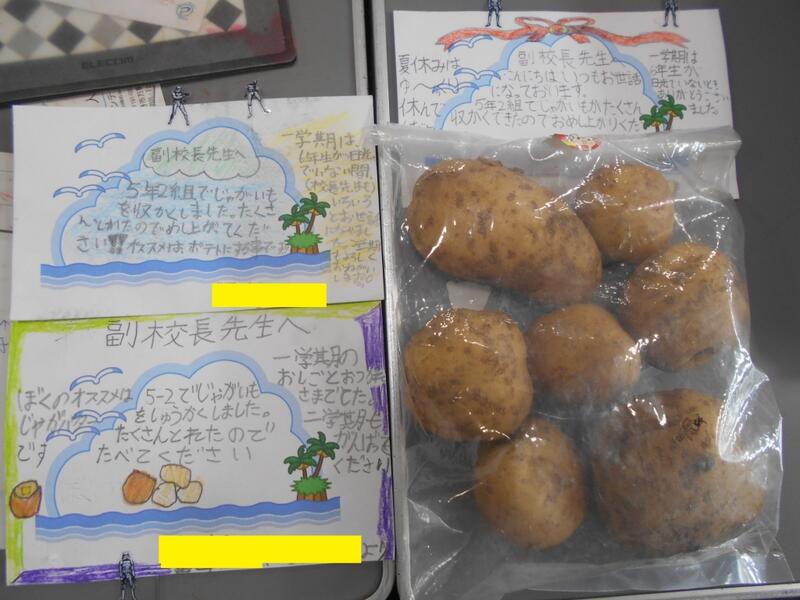 ELECOM
副校長先生へ
5年2組でじゃがいも
を収かくしました。たくさ
んとれたのでめし上がってくだ
さい!!オススメはポテトに
一学期は、
6年生が日光
でいない間
いろいろ
お世話
副校長先生へ
5-2でじゃがいも
をしゅうかくしました。
たくさんとれたので
たべてください
ぼくのオススメは
じゃがバター
です
一学期の
おしごとおつかれ
さまでした。
二学期も
がんばって
ください
より
副校長先生へ
こんにちは いつもお世話
になっております。
5年2組でじゃがいもがたくさん
収かくできたのでおめし上がりくだ
夏休みは
ゆ〜っくり
休んで
一学期は
6年生が
ました。